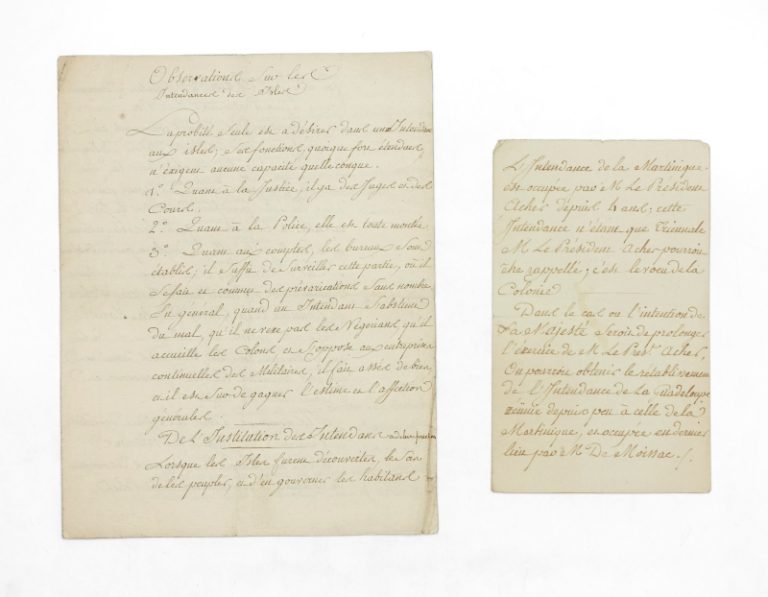 Observations Sur les
Intendances des Isles
La probité Seule est a désirer dans un Intendant
aux isles; Ses fonctions quoique fort étendues
n'exigent aucune capacité quelleconque.
1.° Quant à la Justice, il y a des Juges et des
Cours.
2.° Quant à la Police, elle est toute montée.
3.° Quant aux comptes, les bureaux Sont
établis, il Suffit de Surveiller cette partie, où il
Se fait et commet des prévarications Sans nombre
En général, quand un Intendant S'abstient
du mal, qu'il ne vexe pas les Négocians, qu'il
accueille les Colons et S'oppose aux entreprises
continuelles des Militaires, il fait assez de bien,
et il est Sur de gagner l'estime et l'affection
générales.
De L'Institution des Intendans
Lorsque les Isles furent découvertes, le Soin
de les peupler, et d'en gouverner les habitans
L'Intendance de la Martinique
est occupée par M Le Président
Acher depuis 4 ans; cette
Intendance n'étant que Triennale
M Le Président Acher pourroit
être rappellé; c'est le voeu de la
Colonie
Dans le cas ou l'intention de
Sa Majesté Seroit de prolonger
l'exercice de M Le Presᵗ. Acher,
On pourroit obtenir le retablissement
de l'Intendance de la Guadeloupe
réunie depuis peu à celle de la
Martinique, et occupée en dernier
lieu par Mr De Moissac ./.